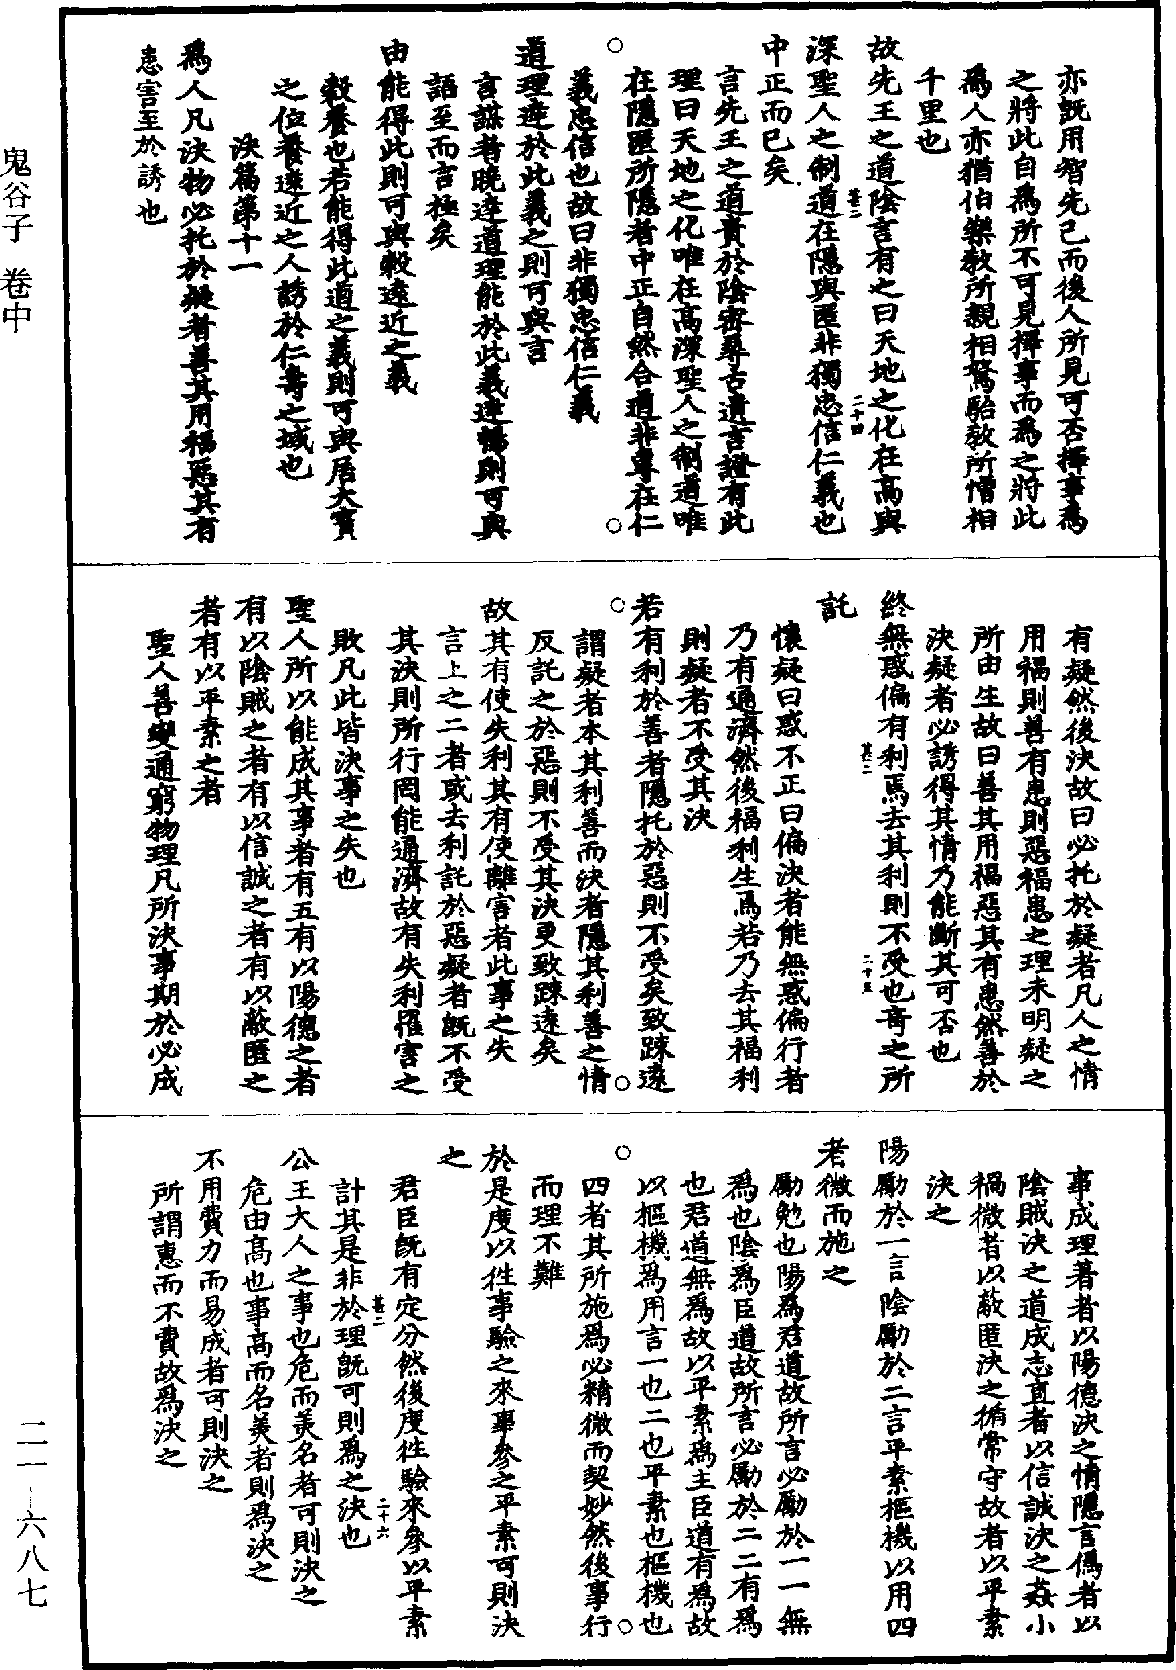 亦既用智先己而後人所見可否擇事爲
之將此自爲所不可見擇事而爲之將此
爲人亦猶伯樂教所親相駑駘教所憎相
千里也
故先王之道陰言有之曰天地之化在高與
深聖人之制道在隱與匿非獨忠信仁義也
中正而已矣
言先王之道貴於陰密尋古遺言證有此
理曰天地之化唯在高深聖人之制道唯
在隱匿所隱者中正自然合道非專在仁
義忠信也故曰非獨忠信仁義
道理達於此義之則可與言
言謀者曉達道理能於此義達暢則可與
語至而言極矣
由能得此則可與穀遠近之義
穀養也若能得此道之義則可與居大寶
之位養遠近之人誘於仁壽之域也
決篇第十一
爲人凡決物必托於疑者善其用福惡其有
患害至於誘也
有疑然後決故曰必托於疑者凡人之情
用福則善有患則惡福患之理未明疑之
所由生故曰善其用福惡其有患然善於
決疑者必誘得其情乃能斷其可否也
終無惑偏有利焉去其利則不受也奇之所
託
懷疑曰惑不正曰偏決者能無惑偏行者
乃有通濟然後福利生焉若乃去其福利
則疑者不受其決
若有利於善者隱托於惡則不受矣致踈遠
謂疑者本其利善而決者隱其利善之情
反託之於惡則不受其決更致踈遠矣
故其有使失利其有使離害者此事之失
言上之二者或去利託於惡疑者既不受
其決則所行罔能通濟故有失利罹害之
敗凡此皆決事之失也
聖人所以能成其事者有五有以陽德之者
有以陰賊之者有以信誠之者有以蔽匿之
者有以平素之者
聖人善變通窮物理凡所決事期於必成
事成理著者以陽德決之情隱言僞者以
陰賊決之道成志直者以信誠決之姦小
禍微者以蔽匿決之循常守故者以平素
決之
陽勵於一言陰勵於二言平素樞機以用四
者微而施之
勵勉也陽爲君道故所言必勵於一一無
爲也陰爲臣道故所言必勵於二二有爲
也君道無爲故以平素爲主臣道有爲故
以樞機爲用言一也二也平素也樞機也
四者其所施爲必精微而契妙然後事行
而理不難
於是度以徃事驗之來事參之平素可則決
之
君臣既有定分然後度徃驗來參以平素
計其是非於理既可則爲之決也
公王大人之事也危而美名者可則決之
危由高也事高而名美者則爲決之
不用費力而易成者可則決之
所謂惠而不費故爲決之
甚二
二十四
甚二
二十五
甚二
二十六
鬼谷子 卷中
二一—六八七